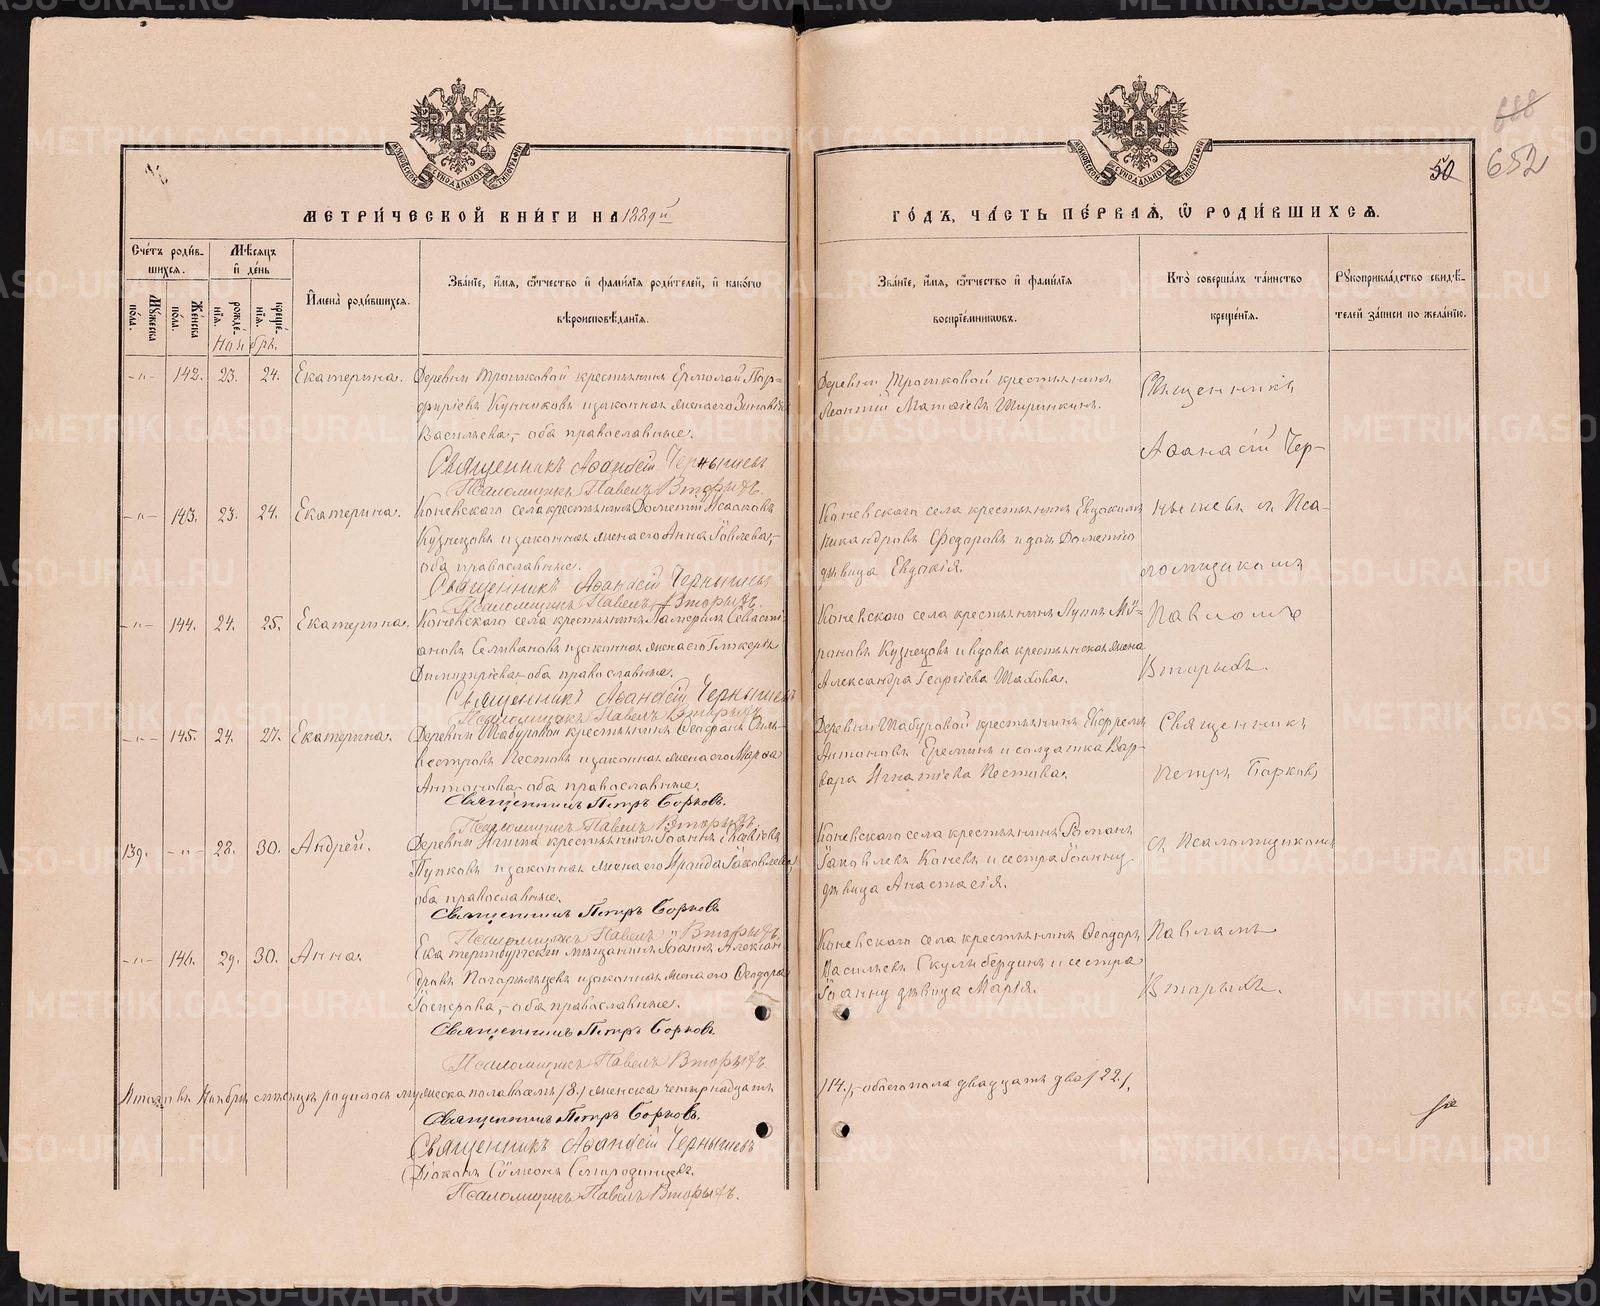 888
652
50
МЕТРИЧЕСКОЙ КНИГИ НА 1889й
ГОДЪ, ЧАСТЬ ПЕРВАЯ, Ѡ РОДИВШИХСЯ.
Счетъ родив-
шихся.
Мѣсяцъ
и день
Мужеска
пола.
Женска
пола.
рожде-
нія.
креще-
нія.
Имена родившихся.
Званіе, имя, отчество и фамилія родителей, и какого
вѣроисповѣданія.
Званіе, имя, отчество и фамилія
воспріемниковъ.
Кто совершалъ таинство
крещенія.
Рукоприкладство свидѣ-
телей записи по желанію.
Ноябрь.
-"- 142. 23. 24. Екатерина.
Деревни Трошковой крестьянинъ Ермолай Пор-
фиріевъ Кунниковъ и законная жена его Зиновія
Васильева,- оба православные.
Священникъ Аѳанасій Чернышевъ
Псаломщикъ Павелъ Вторыхъ.
Деревни Трошковой крестьянинъ
Леонтій Матѳіевъ Ширинкинъ.
Священникъ
Аѳанасій Чер-
нышевъ съ Пса-
ломщикомъ
Павломъ
Вторыхъ.
-"- 143. 23. 24. Екатерина.
Коневскаго села крестьянинъ Дометій Исааковъ
Кузнецовъ и законная жена его Анна Іовлева,-
оба православные.
Священникъ Аѳанасій Чернышевъ
Псаломщикъ Павелъ Вторыхъ.
Коневскаго села крестьянинъ Евдокимъ
Никандровъ Ѳедоровъ и дочь Дометія
дѣвица Евдокія.
-"- 144. 24. 25. Екатерина.
Коневскаго села крестьянинъ Севасті-
ановъ Селивановъ и законная жена его Гликерія
Димитріева,-оба православные.
Священникъ Аѳанасій Чернышевъ
Псаломщикъ Павелъ Вторыхъ.
Коневскаго села крестьянинъ Луппъ Мѵ-
роновъ Кузнецовъ и вдова крестьянская жена
Александра Георгіева Шахова.
-"- 145. 24. 27. Екатерина.
Деревни Шабуровой крестьянинъ Ѳеофанъ Силь-
вестровъ Пестовъ и законная жена его Марѳа
Антонова,-оба православные.
Священникъ Петръ Борковъ.
Псаломщикъ Павелъ Вторыхъ.
Деревни Шабуровой крестьянинъ Ефремъ
Антоновъ Ереминъ и солдатка Вар-
вара Игнатіева Пестова.
Священникъ
Петръ Борковъ
съ Псаломщикомъ
Павломъ
Вторыхъ.
139. -"- 28. 30. Андрей.
Деревни крестьянинъ Іоаннъ
Пупковъ и законная жена его Ираида Іаковлева,
оба православные.
Священникъ Петръ Борковъ
Псаломщикъ Павелъ Вторыхъ.
Коневскаго села крестьянинъ Романъ
Іаковлевъ Коневъ и сестра Іоанну
дѣвица Анастасія.
-"- 146. 29. 30. Анна.
Екатеринбургскій мѣщанинъ Іоаннъ Алексан-
дровъ Погорѣльцевъ и законная жена его Ѳеодора
оба православные.
Священникъ Петръ Борковъ
Псаломщикъ Павелъ Вторыхъ.
Коневскаго села крестьянинъ Ѳеодоръ
Васильевъ Скулыбердинъ и сестра
Іоанну дѣвица Марія.
Итого въ Ноябрѣ мѣсяцѣ родилось мужеска пола восемь /8/ женска четырнадцать
/14/,- обоего пола двадцать два /22/.
Священникъ Петръ Борковъ.
Священникъ Аѳанасій Чернышевъ
Діаконъ Сѵмеонъ Смородинцевъ.
Псаломщикъ Павелъ Вторыхъ.
METRIKI.GASO-URAL.RU